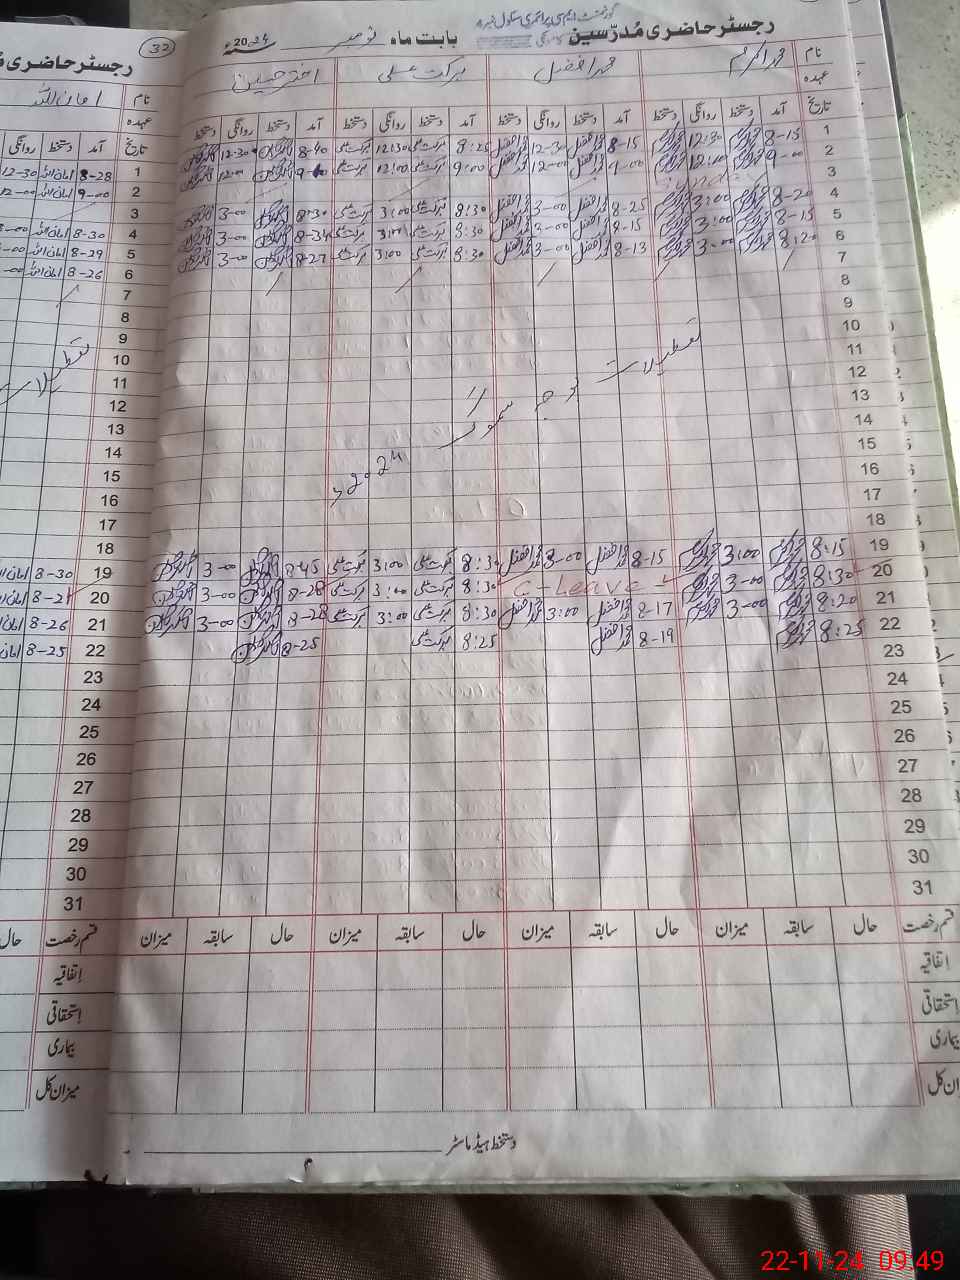 گورنمنٹ ایم سی پرائمری سکول نمبر 4
رجسٹر حاضری مُدرّسین بابت ماہ نومبر 2024ء
نام محمد اکرم محمد افضل برکت علی اختر حسین
عہدہ
تاریخ آمد دستخط روانگی دستخط آمد دستخط روانگی دستخط آمد دستخط روانگی دستخط آمد دستخط روانگی دستخط
1 8-15 12:30 8-15 12-30 8:25 برکت علی 12:30 برکت علی 8-40 12-30
2 9-00 12:00 9-00 12-00 9:00 برکت علی 12:00 برکت علی 9-00 12-00
3 Sunday
4 8-20 3:00 8-25 3-00 8:30 برکت علی 3:00 برکت علی 8-30 3-00
5 8-15 3:00 8-15 3-00 8:30 برکت علی 3:00 برکت علی 8-34 3-00
6 8:20 3-00 8-13 3-00 8:30 برکت علی 3:00 برکت علی 8-27 3-00
7
8
9
10
11
12
13
14
15
16
17
18
تعطیلات بوجہ سموگ
2024ء
19 8:15 3:00 8-15 3-00 8:30 برکت علی 3:00 برکت علی 8-45 3-00
20 8:30 3-00 C-Leave 8:30 برکت علی 3:00 برکت علی 8-28 3-00
21 8:20 3-00 8-17 3:00 8:30 برکت علی 3:00 برکت علی 8-28 3-00
22 8:25 8-19 8:25 برکت علی 8-25
23
24
25
26
27
28
29
30
31
قسم رخصت حال سابقہ میزان حال سابقہ میزان حال سابقہ میزان حال سابقہ میزان
اتفاقیہ
استحقاقی
بیماری
میزان کل
دستخط ہیڈ ماسٹر
32
رجسٹر حاضری
نام امان اللہ
عہدہ
تاریخ آمد دستخط روانگی
1 8-28 امان اللہ 12-30
2 9-00 امان اللہ 12-00
3
4 8-30 امان اللہ
5 8-29 امان اللہ
6 8-26 امان اللہ
7
8
9
10
11
12
13
14
15
16
17
18
تعطیلات
19 8-30
20 8-21
21 8-26
22 8-25
23
24
25
26
27
28
29
30
31
قسم رخصت حال
اتفاقیہ
استحقاقی
بیماری
میزان کل
22-11-24 09:49